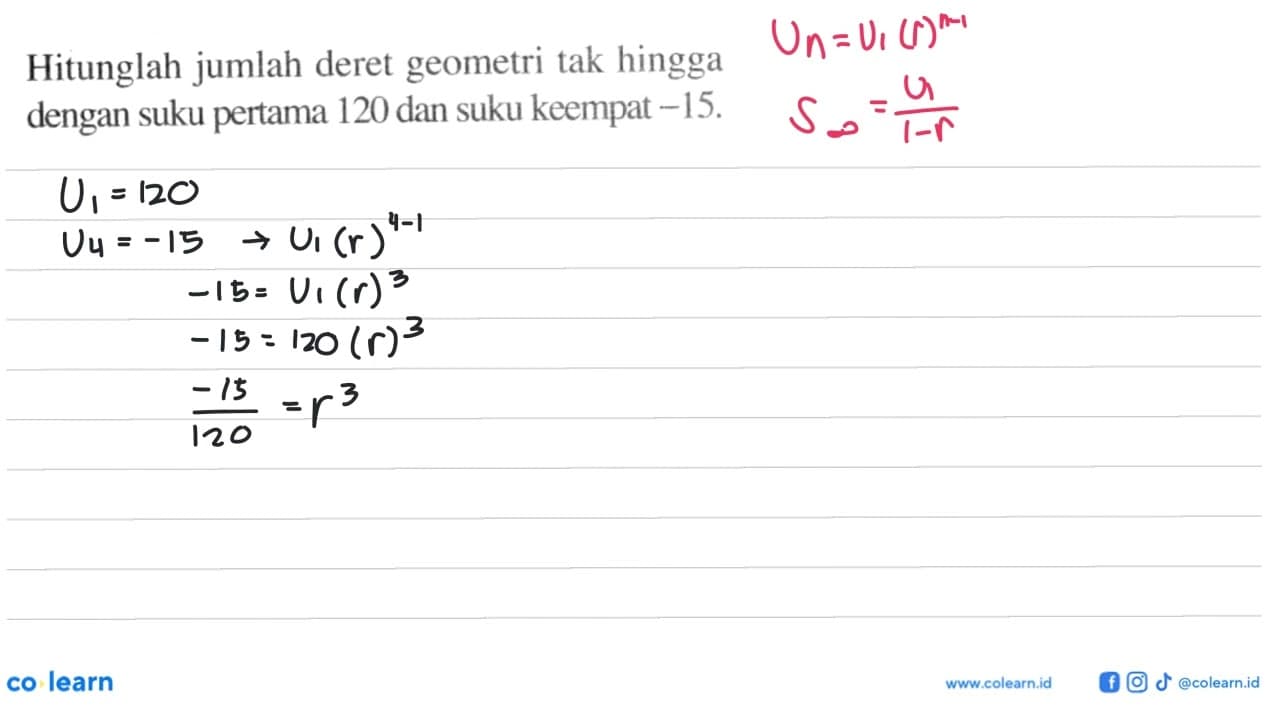 Hitunglah jumlah deret geometri tak hingga
dengan suku pertama 120 dan suku keempat -15.
Un = U1 (r)^n-1
S∞ = U1/1-r
U1 = 120
U4 = -15 → U1 (r)^4-1
-15 = U1 (r)^3
-15 = 120 (r)^3
-15/120 = r^3
co learn
www.colearn.id
@colearn.id